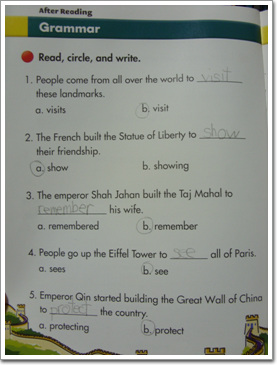 After Reading
Grammar
Read, circle, and write.
1. People come from all over the world to visit
these landmarks.
a. visits b. visit
2. The French built the Statue of Liberty to show
their friendship.
a. show b. showing
3. The emperor Shah Jahan built the Taj Mahal to
remember his wife.
a. remembered b. remember
4. People go up the Eiffel Tower to see all of Paris.
a. sees b. see
5. Emperor Qin started building the Great Wall of China
to protect the country.
a. protecting b. protect